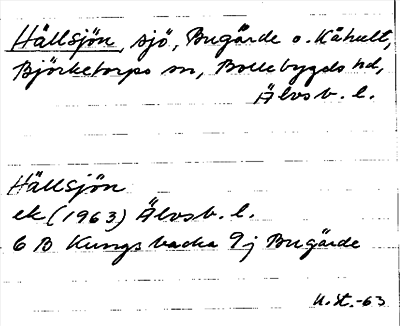 Hällsjön, sjö, Bugärde o. Kåhult,
Björketorps sn, Bollebygds hd,
Älvsb. l.
Hällsjön
ek (1963) Älvsb. l.
6 B Kungsbacka 9 j Bugärde
U.St.-63